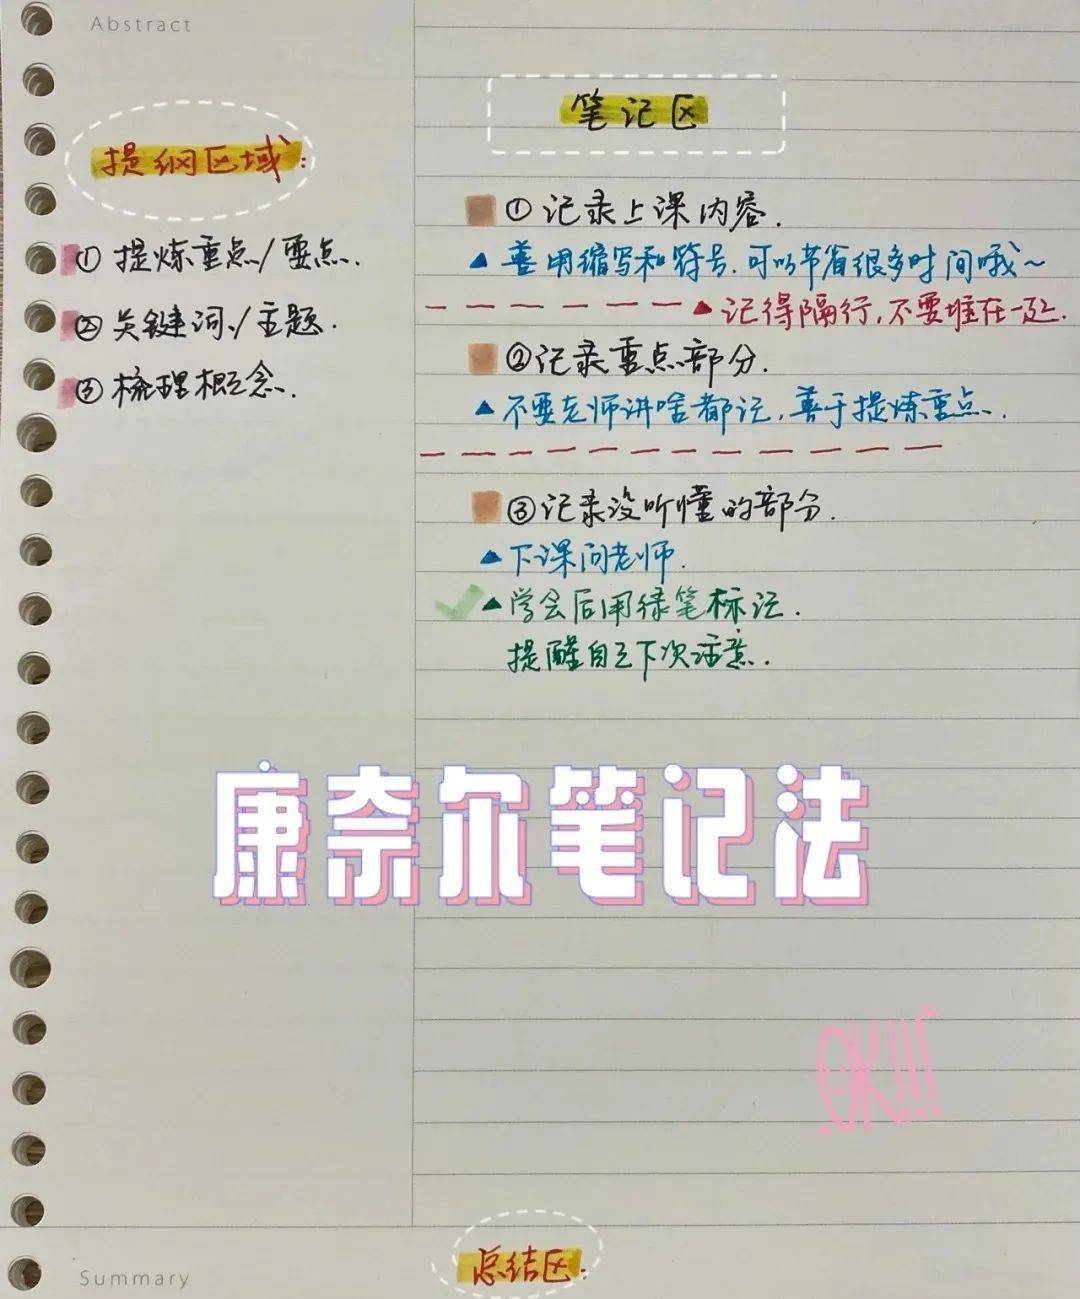 Abstract
提纲区域:
① 提炼重点/要点.
② 关键词/主题.
③ 梳理概念.
笔记区
① 记录上课内容.
▲ 善用缩写和符号.可以节省很多时间哦~
▲ 记得隔行,不要堆在一起.
② 记录重点部分.
▲ 不要老师讲啥都记,善于提炼重点.
③ 记录没听懂的部分.
▲ 下课问老师.
▲ 学会后用绿笔标记.
提醒自己下次注意.
康奈尔笔记法
OK!!!
Summary
总结区: